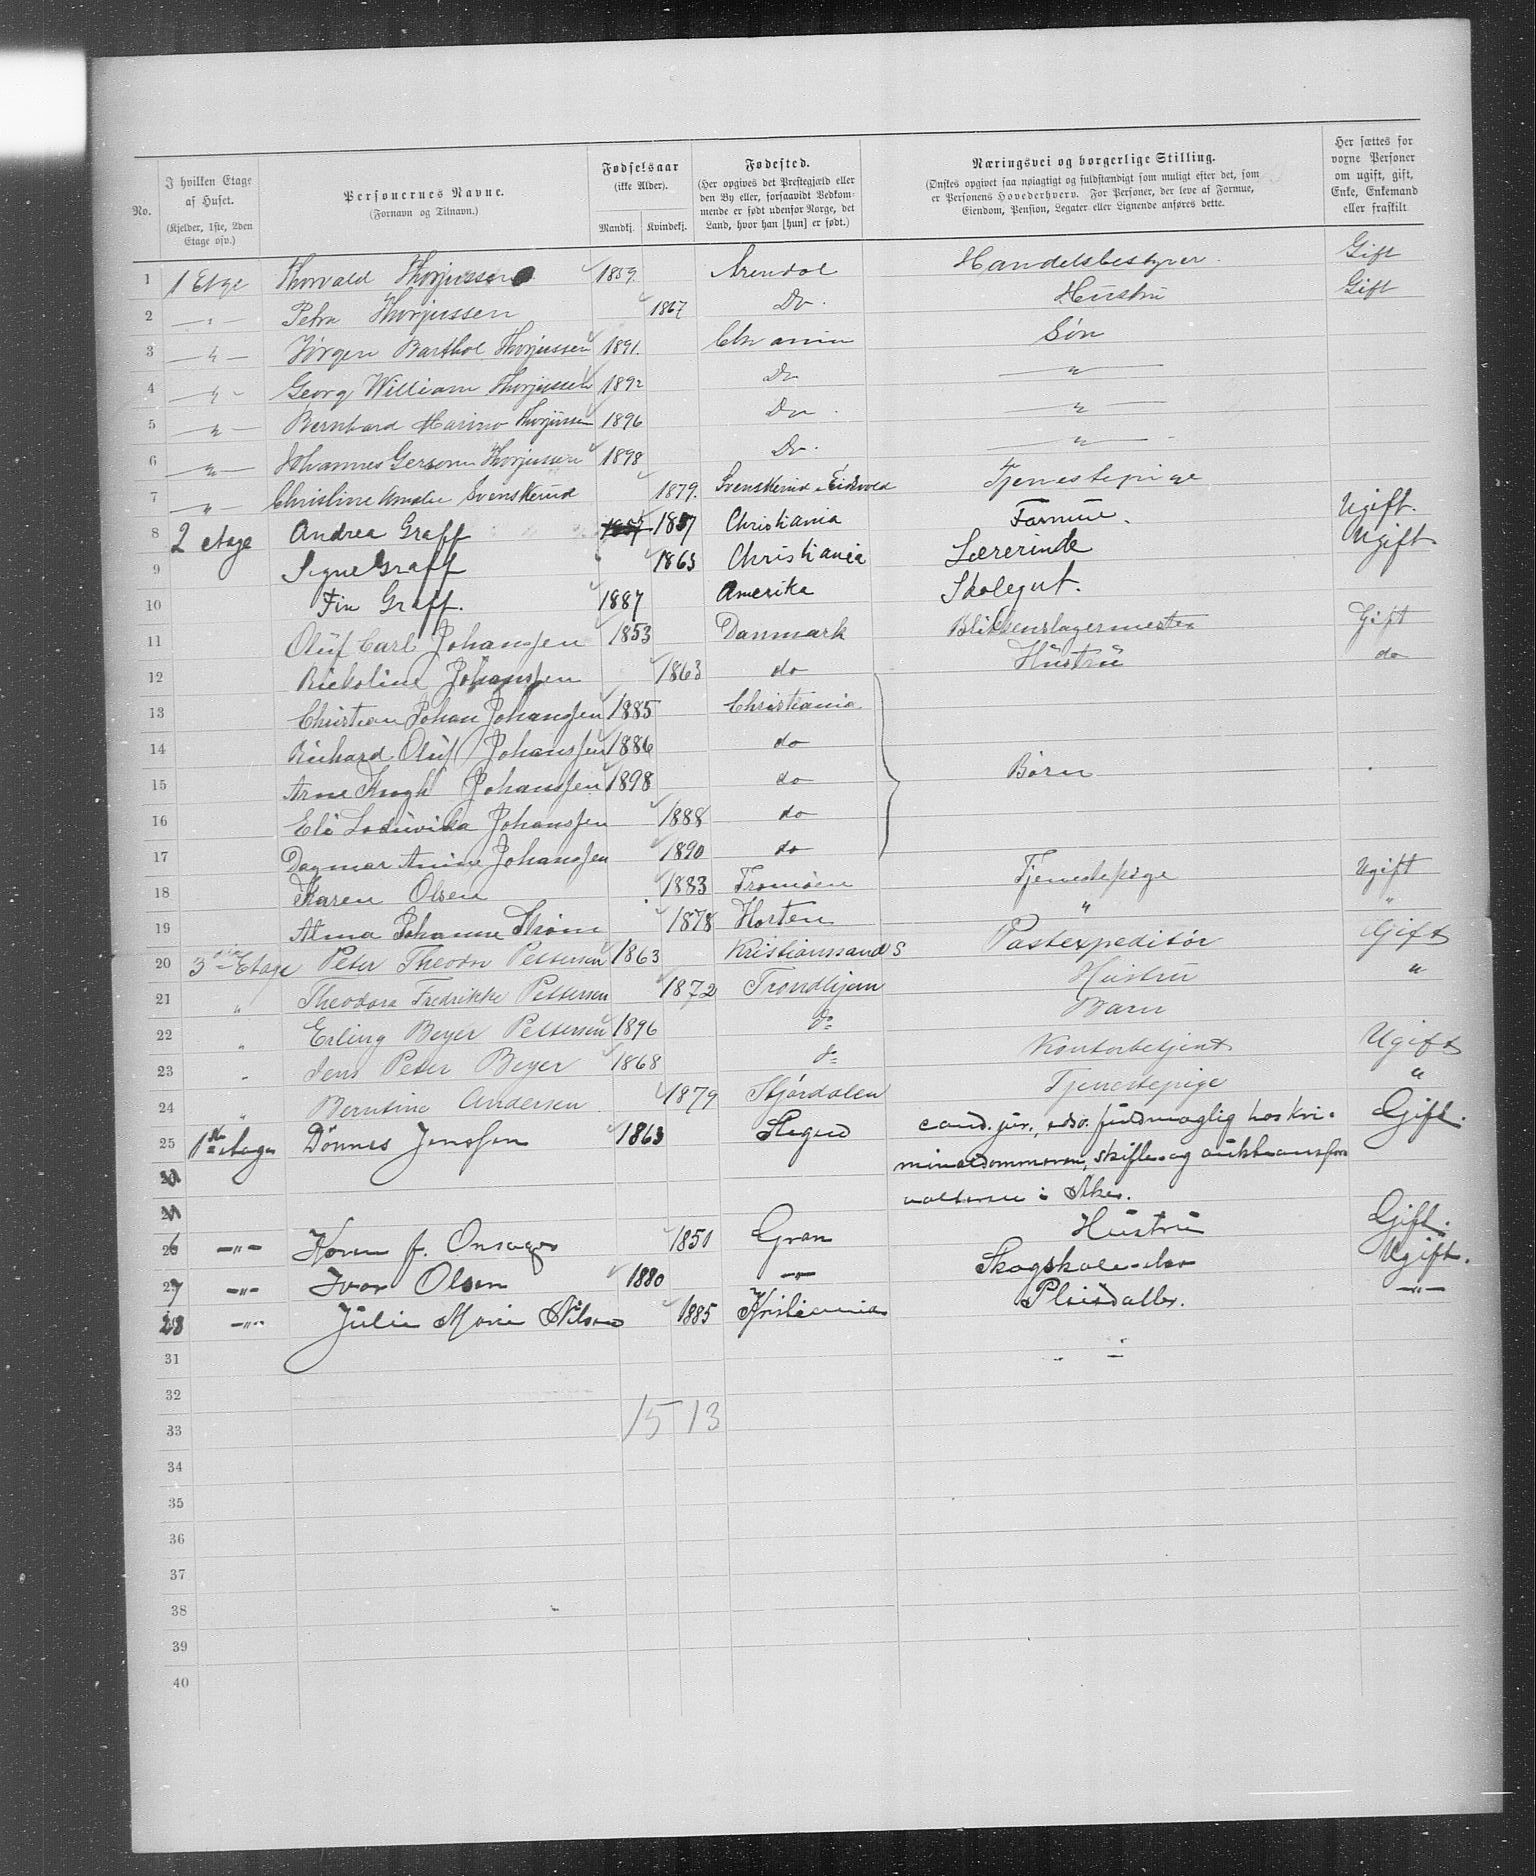 No. | I hvilken Etage af Huset. (Kjelder, 1ste, 2den Etage osv.) | Personernes Navne. (Fornavn og Tilnavn.) | Fødselsaar (ikke Alder). Mandkj. Kvindekj. | Fødested. (Her opgives det Prestegjæld eller den By eller, forsaavidt Vedkommende er født udenfor Norge, det Land, hvor han [hun] er født.) | Næringsvei og borgerlige Stilling. (Ønskes opgivet saa nøiagtigt og fuldstændigt som muligt efter det, som er Personens Hovederhverv. For Personer, der leve af Formue, Eiendom, Pension, Legater eller Lignende anføres dette. | Her sættes for voxne Personer om ugift, gift, Enke, Enkemand eller fraskilt
1 1 Etage Thorvald Thorjussen 1859. Arendal Handelsbestyrer. Gift
2 — " — Petra Thorjussen 1867 Do. Hustru Gift
3 — " — Jørgen Barthol Thorjussen 1891. Chr ania Søn
4 — " — Georg William Thorjussen 1892 Do — " —
5 — " — Bernhard Marino Thorjussen 1896 Do. — " —
6 — " — Johannes Gerson Thorjussen 1898 Do. — " —
7 — " — Christine Amalie Svenskerud 1879. Svenskerud Eidsvold Tjenestepige
8 2 etage Andrea Graff 1857 1857 Christiania Formue. Ugift.
9 Signe Graff 1863 Christiania Lærerinde Ugift
10 Fin Graff. 1887 Amerika Skolegut.
11 Oluf Carl Johanssen 1853 Danmark Blikkenslagermester Gift
12 Rickoline Johanssen 1863 do Hustru do
13 Christian Johan Johanssen 1885 Christiania
14 Richard Oluf Johanssen 1886 do
15 Arne Krogh Johanssen 1898 do Børn
16 Eli Lodovika Johanssen 1888 do
17 Dagmar Anine Johanssen 1890 do
18 Karen Olsen 1883 Tromøen Tjenestepige Ugift
19 Alma Johanne Strøm 1878 Horten " "
20 3die Etage Peter Theodor Pettersen 1863 Kristianssand S Postexpeditør Gift
21 " Theodora Fredrikke Pettersen 1872 Trondhjem Hustru "
22 " Erling Beyer Pettersen 1896 do Barn
23 " Jens Peter Beyer 1868 do Kontorbetjent Ugift
24 " Berntine Andersen 1879 Stjørdalen Tjenestepige "
25 1ste etage Dönnes Jenssen 1863 Stegud cand. jur., edsv. fuldmægtig hos kri-
minaldommeren, skifte- og auktionsfor Gift.
valteren i Aker.
26 — " — Karen f. Onsager 1850 Gran Hustru Gift.
27 — " — Ivar Olsen 1880 — " — Skogskoleelev Ugift.
28 — " — Julie Marie Nilsen 1885 Kristiania Pleiedatter. — " —
31
32
33 15 13
34
35
36
37
38
39
40